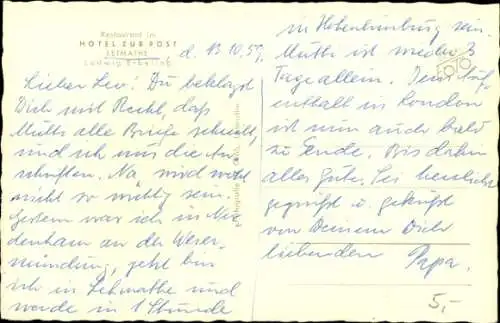 Restaurant im
HOTEL ZUR POST
LETMATHE
Ludwig Ebeling
d. 13.10.59.
Lieber Leo! Du beklagst
Dich mit Recht, daß
Mutti alle Briefe schreibt,
und ich nur die An-
schriften. Na, wird wohl
nicht so wichtig sein.
Gestern war ich in Nor-
denham an der Weser-
mündung, jetzt bin
ich in Letmathe und
werde in 1 Stunde
in Hohenlimburg sein.
Mutti ist wieder 3
Tage allein. Dein Auf-
enthalt in London
ist nun auch bald
zu Ende. Bis dahin
alles Gute. Sei herzlichst
gegrüßt u. geküßt
von Deinem Dich
liebenden Papa.
5,-